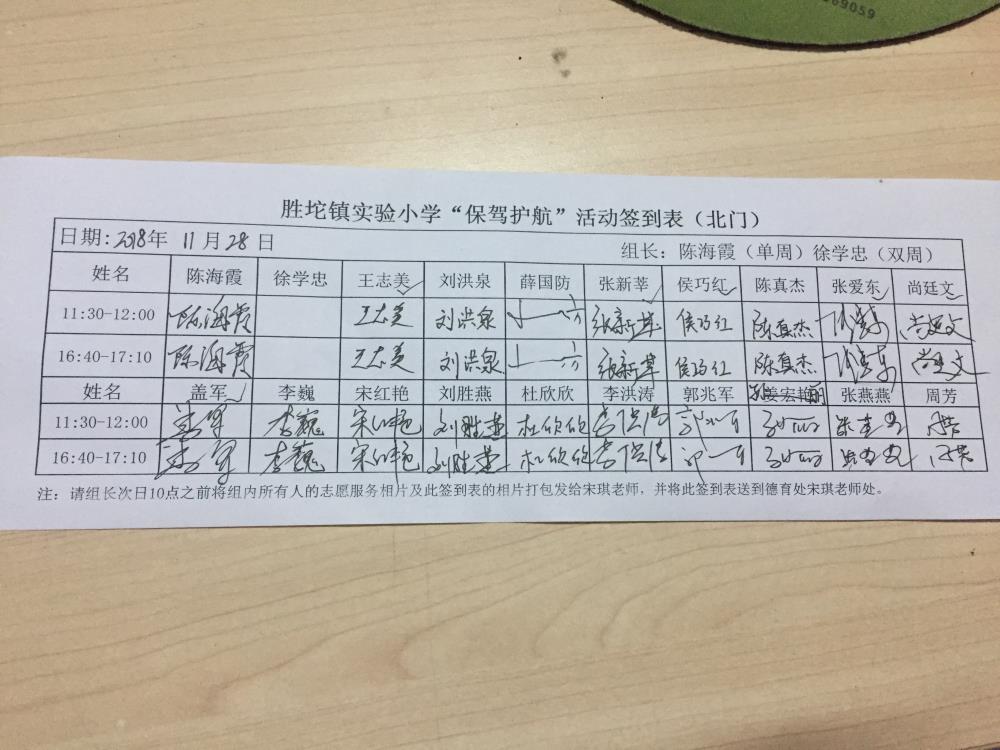 69059
胜坨镇实验小学“保驾护航”活动签到表（北门）
日期：2018年 11月28日 组长：陈海霞（单周）徐学忠（双周）
姓名 陈海霞 徐学忠 王志美 刘洪泉 薛国防 张新莘 侯巧红 陈真杰 张爱东 尚廷文
11:30-12:00 陈海霞 王志美 刘洪泉 张新莘 侯巧红 陈真杰 张爱东 尚廷文
16:40-17:10 陈海霞 王志美 刘洪泉 张新莘 侯巧红 陈真杰 张爱东 尚廷文
姓名 盖军 李巍 宋红艳 刘胜燕 杜欣欣 李洪涛 郭兆军 姜宏艳 张燕燕 周芳
11:30-12:00 盖军 李巍 宋红艳 刘胜燕 杜欣欣 李洪涛 周芳
16:40-17:10 盖军 李巍 宋红艳 刘胜燕 杜欣欣 李洪涛 周芳
注：请组长次日10点之前将组内所有人的志愿服务相片及此签到表的相片打包发给宋琪老师，并将此签到表送到德育处宋琪老师处。